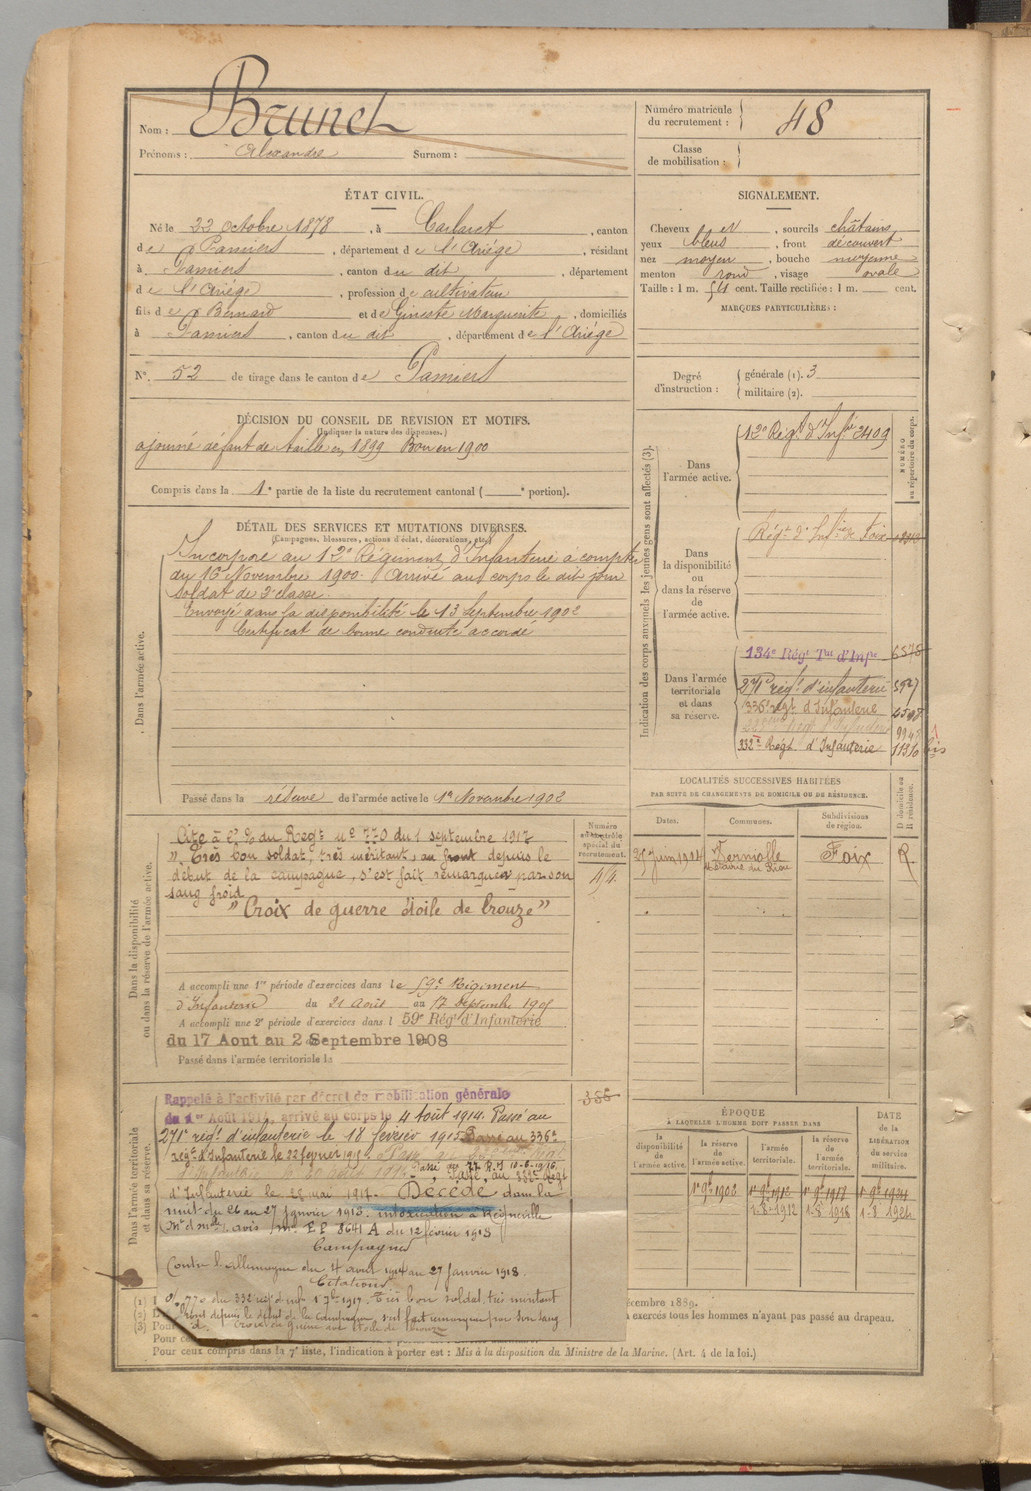 Nom : Brunet
Prénoms : Alexandre Surnom :
Numéro matricule du recrutement : 48
Classe de mobilisation :
ÉTAT CIVIL.
Né le 22 octobre 1878, à , canton
de Pamiers, département de l'Ariége, résidant
à Pamiers, canton du dit, département
de l'Ariége, profession de cultivateur
fils de Bernard et de Gineste Marguerite, domiciliés
à Pamiers, canton du dit, département de l'Ariége
No. 52 de tirage dans le canton de Pamiers
SIGNALEMENT.
Cheveux et, sourcils châtains
yeux bleus, front découvert
nez moyen, bouche moyenne
menton rond, visage ovale
Taille : 1 m. 54 cent. Taille rectifiée : 1 m. cent.
MARQUES PARTICULIÈRES :
Degré d'instruction : générale (1). 3
militaire (2).
DÉCISION DU CONSEIL DE REVISION ET MOTIFS.
(Indiquer la nature des dispenses.)
ajourné défaut de taille en 1899 Bon en 1900
Compris dans la 1e partie de la liste du recrutement cantonal ( e portion).
DÉTAIL DES SERVICES ET MUTATIONS DIVERSES.
(Campagnes, blessures, actions d'éclat, décorations, etc.)
Dans l'armée active.
Incorporé au 12e Régiment d'Infanterie à compter
du 16 Novembre 1900. Arrivé au corps le dit jour
soldat de 2e classe.
Envoyé dans la disponibilité le 13 Septembre 1902
Certificat de bonne conduite accordé
Passé dans la réserve de l'armée active le 1er Novembre 1902
Indication des corps auxquels les jeunes gens sont affectés (3).
NUMÉRO au répertoire du corps.
Dans l'armée active.
12e Régt d'Infie 2409
Dans la disponibilité ou dans la réserve de l'armée active.
Régt d'Infie de Foix
Dans l'armée territoriale et dans sa réserve.
134e Régt Tal d'Infie 6578
271e régt d'infanterie
336e régt d'Infanterie
332e Régt d'Infanterie 11310 bis
LOCALITÉS SUCCESSIVES HABITÉES
PAR SUITE DE CHANGEMENTS DE DOMICILE OU DE RÉSIDENCE.
D domicile ou R résidence.
Dates. Communes. Subdivisions de région.
Juin 1914 Foix R.
Dans la disponibilité ou dans la réserve de l'armée active.
Numéro au contrôle spécial du recrutement.
Cité à l'o/ du Régt no 770 du 1 septembre 1917
„ Très bon soldat, très méritant, au front depuis le
début de la campagne, s'est fait remarquer par son
sang froid
„ Croix de guerre étoile de bronze "
A accompli une 1re période d'exercices dans le 59e Régiment
d'Infanterie du 21 Août au 17 Septembre 1905
A accompli une 2e période d'exercices dans l 59e Régt d'Infanterie
du 17 Aout au 2 Septembre 1908
Passé dans l'armée territoriale le
Dans l'armée territoriale et dans sa réserve.
Rappelé à l'activité par décret de mobilisation générale
du 1er Août 1914, arrivé au corps le 4 Août 1914. Passé au
271e régt d'infanterie le 18 février 1915. Passé au 336e
régt d'Infanterie le 22 février 1915.
Passé au 332e Régt
d'Infanterie le mai 1917. Décédé dans la
nuit du 26 au 27 janvier 1918. intoxication à
avis 8641 A du 12 février 1918
Campagnes
Contre l'Allemagne du 4 aout 1914 au 27 janvier 1918.
Citations
o/ 770 du 332 régt d'inf. 1 7bre 1917. Très bon soldat, très méritant
front depuis le début de la Campagne, s'est fait remarquer par son sang
Croix de guerre étoile de bronze
ÉPOQUE
À LAQUELLE L'HOMME DOIT PASSER DANS
DATE de la LIBÉRATION du service militaire.
la disponibilité de l'armée active. la réserve de l'armée active. l'armée territoriale. la réserve de l'armée territoriale.
1er 9bre 1902
1-8-1912
(1)
(2)
(3) Pour
écembre 1889.
à exercés tous les hommes n'ayant pas passé au drapeau.
Pour ceux compris dans la 7e liste, l'indication à porter est : Mis à la disposition du Ministre de la Marine. (Art. 4 de la loi.)